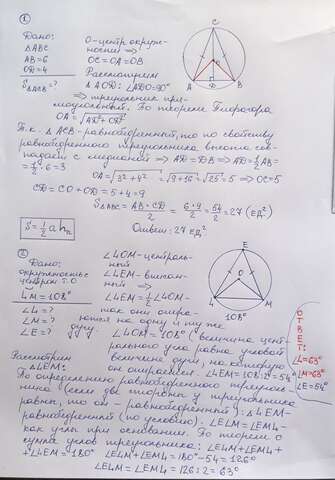 ①
Дано:
О-центр окруж-
△ABC
ности ⇒
AB=6
OC=OA=OB
OD=4
Рассмотрим
S△ACB=?
△AOD: ∠ADO=90°
⇒ треугольник пря-
моугольный. По теореме Пифагора
OA=√AD²+OD²
Т.к. △ACB-равнобедренный, то по св-ву
равнобедренного треугольника высота сов-
падает с медианой ⇒ AD=DB ⇒ AD=½AB=
=½·6=3
OA=√3²+4²=√9+16=√25=5 ⇒ OC=5
CD=CO+OD=5+4=9
S△ABC=AB·CD/2=6·9/2=54/2=27 (ед²)
Ответ: 27 ед²
S=½ah
C
O
A
D
B
②
Дано:
∠LOM-централь-
окружность с
ный
центром т.О
∠LEM-вписан-
LM=108°
ный ⇒
∠L=?
∠LEM=½∠LOM-
∠M=?
так они опира-
∠E=?
ются на одну и ту же
дугу
∠LOM=108° (величина цент-
рального угла равна угловой
величине дуги, на которую
Рассмотрим
он опирается. ∠LEM=108:2=54°
△LEM:
По определению равнобедренного треуголь-
ника (если две стороны у треугольника
равны, то он - равнобедренный): △LEM-
равнобедренный (по условию). ∠ELM=∠EML-
как углы при основании. По теореме о
сумма углов треугольника: ∠ELM+∠EML+
+∠LEM=180° ∠ELM+∠EML=180°-54=126°
∠ELM=∠EML=126:2=63°
E
O
L
M
108°
ОТВЕТ:
∠L=63°
∠M=63°
∠E=54°